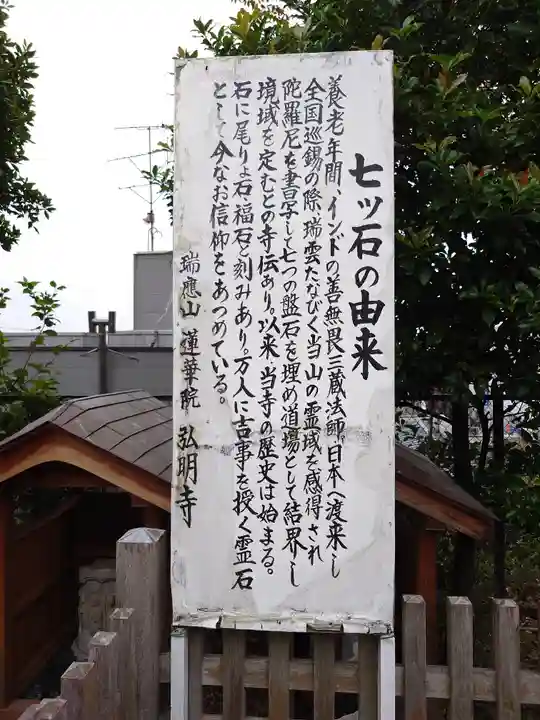 七ッ石の由来
養老年間、インドの善無畏三蔵法師、日本へ渡来し
全国巡錫の際、瑞雲たなびく当山の霊域を感得され
陀羅尼を書写して七つの盤石を埋め道場として結界し
境域を定むとの寺伝あり。以来当寺の歴史は始まる。
石に尾りょ石、福石と刻みあり。万人に吉事を授く霊石
として今なお信仰をあつめている。
瑞應山 蓮華院 弘明寺